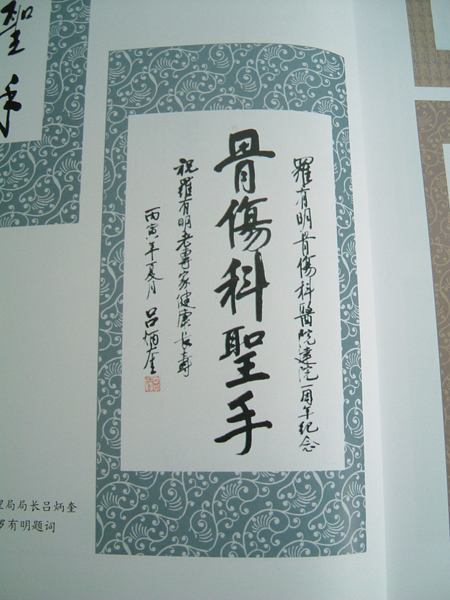 羅有明骨傷科醫院建院一周年纪念
骨傷科聖手
祝羅有明老專家健康長壽
丙寅年夏月 吕炳奎
聖手
理局局长吕炳奎
罗有明题词